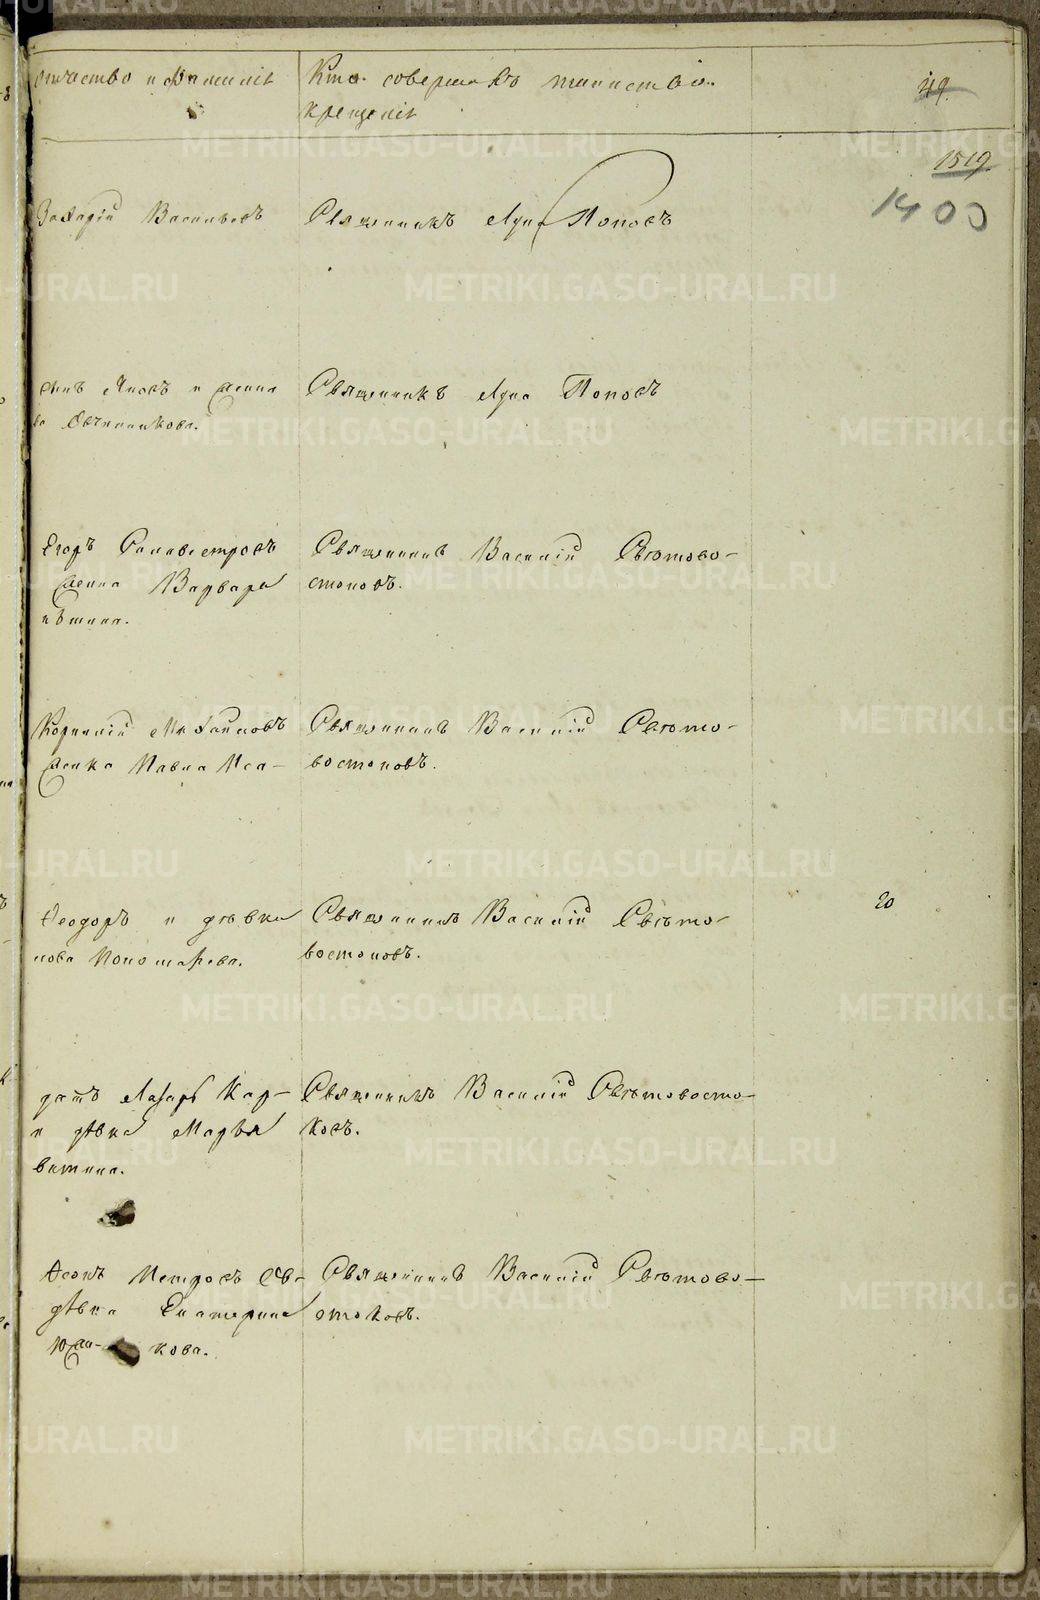 отчество и фамилія
Кто совершалъ таинство
крещенія
49.
1519
1400
Захарій Васильевъ
Священникъ Адна Поповъ
Яковъ и жена
ва Овчинникова.
Священникъ Адна Поповъ
Егоръ Селивестровъ
жена Варвара
Священникъ Василій Свѣтово-
стоковъ.
Корнилій Михайловъ
женка Павла Иса-
Священникъ Василій Свѣто-
востоковъ.
Ѳеодоръ и дѣвка
нова Пономарева.
Священникъ Василій Свѣто-
востоковъ.
20
датъ Лазарь Кар-
и дѣвка Марья
ватина.
Священникъ Василій Свѣтовосто-
ковъ.
Петровъ Ов-
дѣвка Екатерина
Южа- кова.
Священникъ Василій Свѣтово-
стоковъ.
METRIKI.GASO-URAL.RU